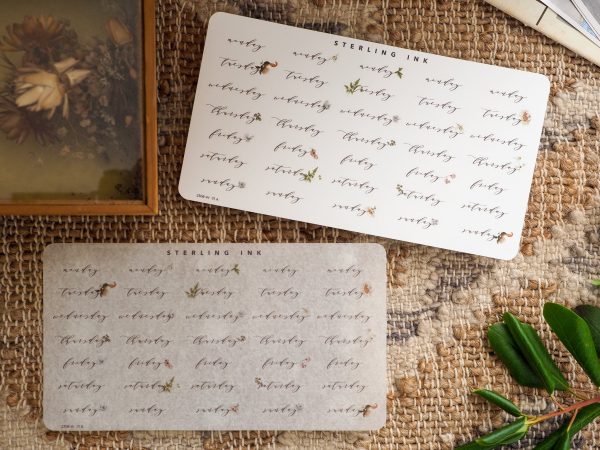 STERLING INK
monday monday monday monday monday
tuesday tuesday tuesday tuesday tuesday
wednesday wednesday wednesday wednesday wednesday
thursday thursday thursday thursday thursday
friday friday friday friday friday
saturday saturday saturday saturday saturday
sunday sunday sunday sunday sunday
STERLING INK
monday monday monday monday monday
tuesday tuesday tuesday tuesday tuesday
wednesday wednesday wednesday wednesday wednesday
thursday thursday thursday thursday thursday
friday friday friday friday friday
saturday saturday saturday saturday saturday
sunday sunday sunday sunday sunday